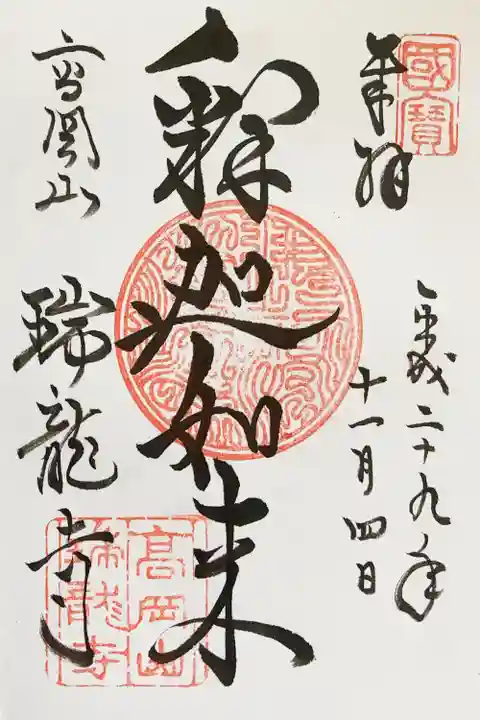 國寶
奉拝
平成二十九年
十一月四日
釋迦如来
高岡山瑞龍寺
高岡山
瑞龍寺